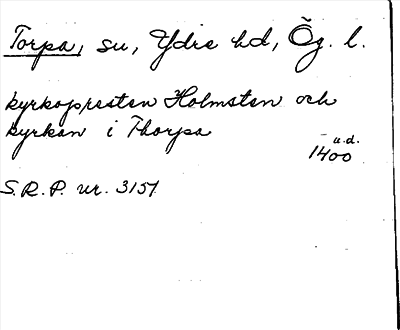 Torpa, sn, Ydre hd, Ög. l.
kyrkopresten Holmsten och
kyrkan i Thorpa
u.d.
1400
S.R.P. nr. 3151